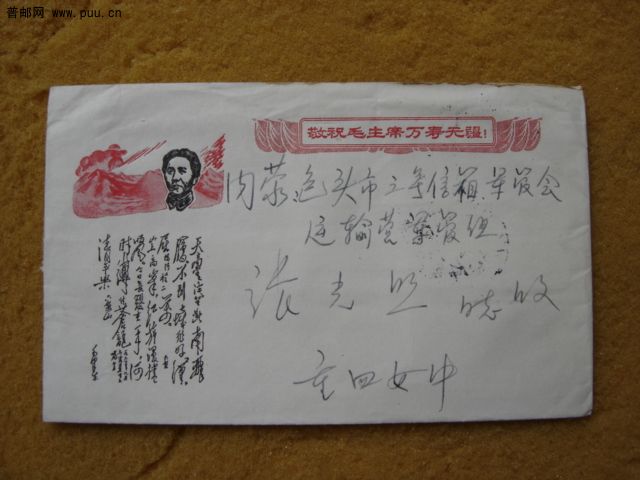 普邮网 www.puu.cn
敬祝毛主席万寿无疆!
内蒙包头市三号信箱革委会
运输营革发组
张光照 收
重四女中
天高云淡望断南飞
雁不到长城非好汉
屈指行程二万
六盘
山高峰红旗漫卷西
风今日长缨在手何
时缚住苍龙
清平乐 六盘山
毛泽东